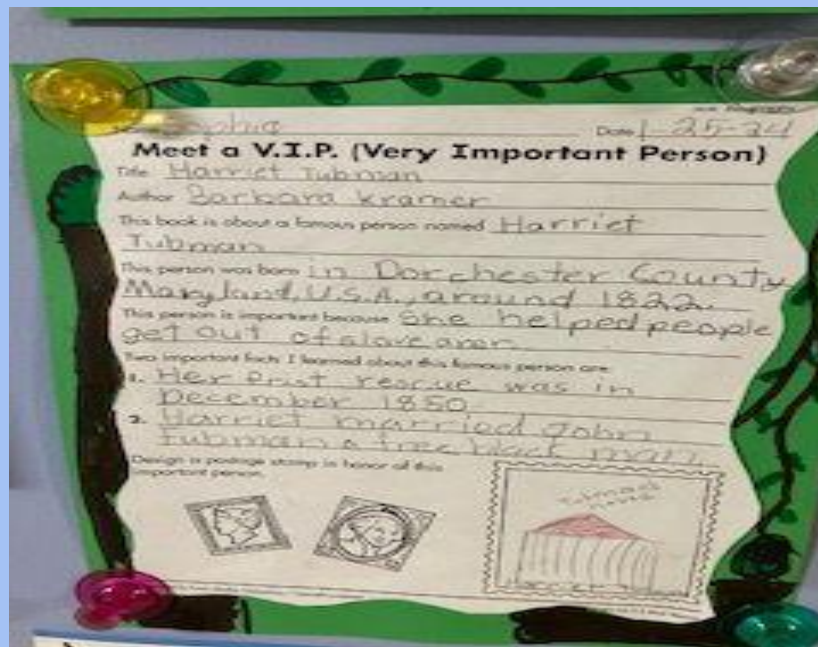 Sophia Date 1-25-24
Meet a V.I.P. (Very Important Person)
Title Harriet Tubman
Author Barbara Kramer
This book is about a famous person named Harriet
Tubman
This person was born in Dorchester County
Maryland, U.S.A., around 1822.
This person is important because She helped people
get out of
Two important facts I learned about this famous person are:
1. Her frist rescue was in
December 1850
2. Harriet married John
Tubman a free black man
Design a postage stamp in honor of this
important person.